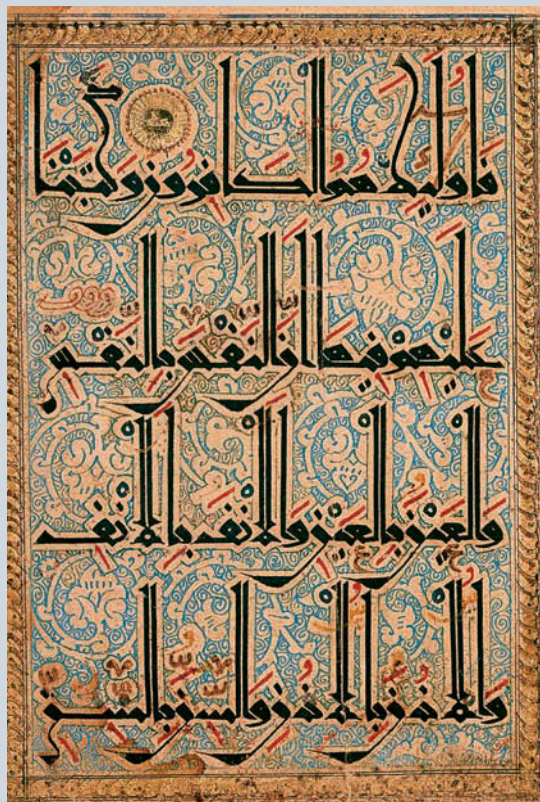 فَأُولَٰئِكَ هُمُ الْكَافِرُونَ وَكَتَبْنَا
عَلَيْهِمْ فِيهَا أَنَّ النَّفْسَ بِالنَّفْسِ
وَالْعَيْنَ بِالْعَيْنِ وَالْأَنْفَ بِالْأَنْفِ
وَالْأُذُنَ بِالْأُذُنِ وَالسِّنَّ بِالسِّنِّ